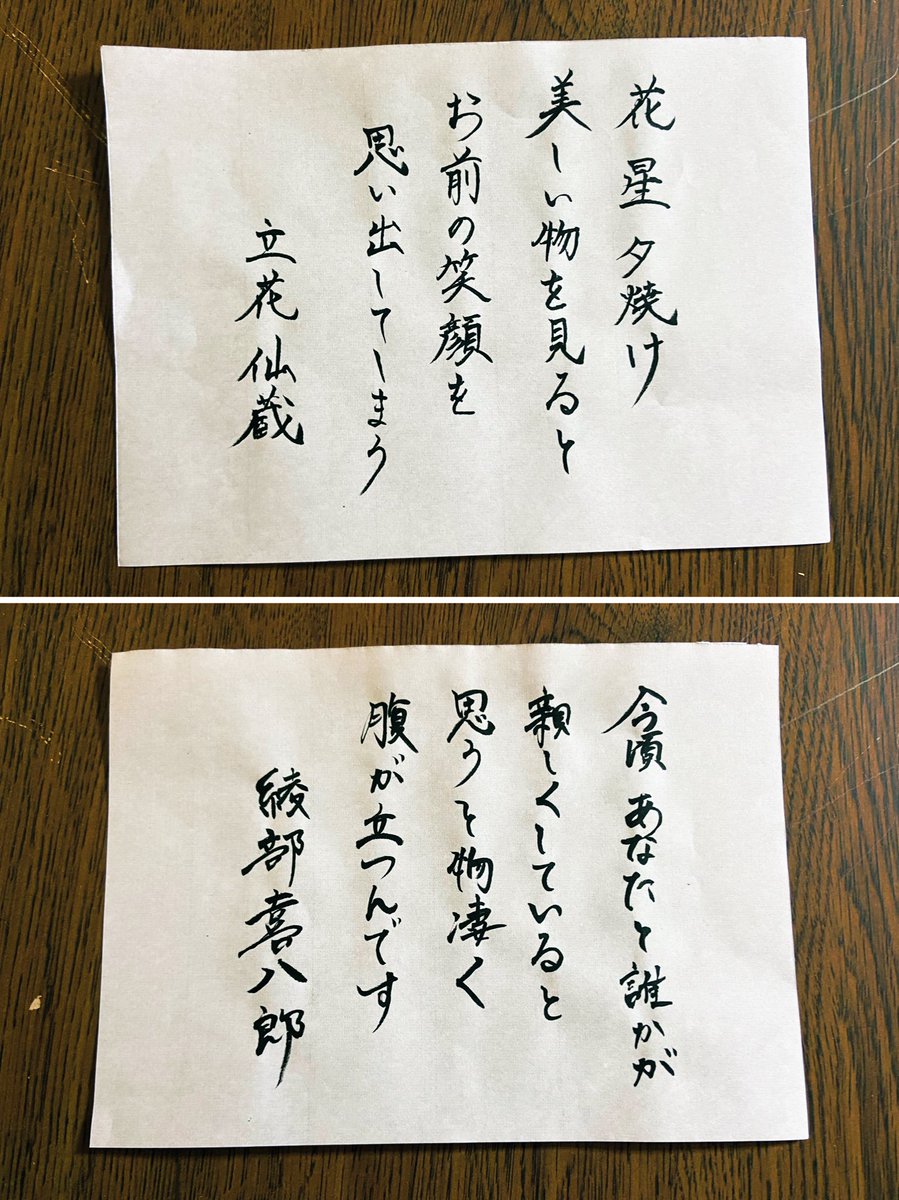 花 星 夕焼け
美しい物を見ると
お前の笑顔を
思い出してしまう
立花仙蔵
今頃 あなたと誰かが
親しくしていると
思うと物凄く
腹が立つんです
綾部喜八郎